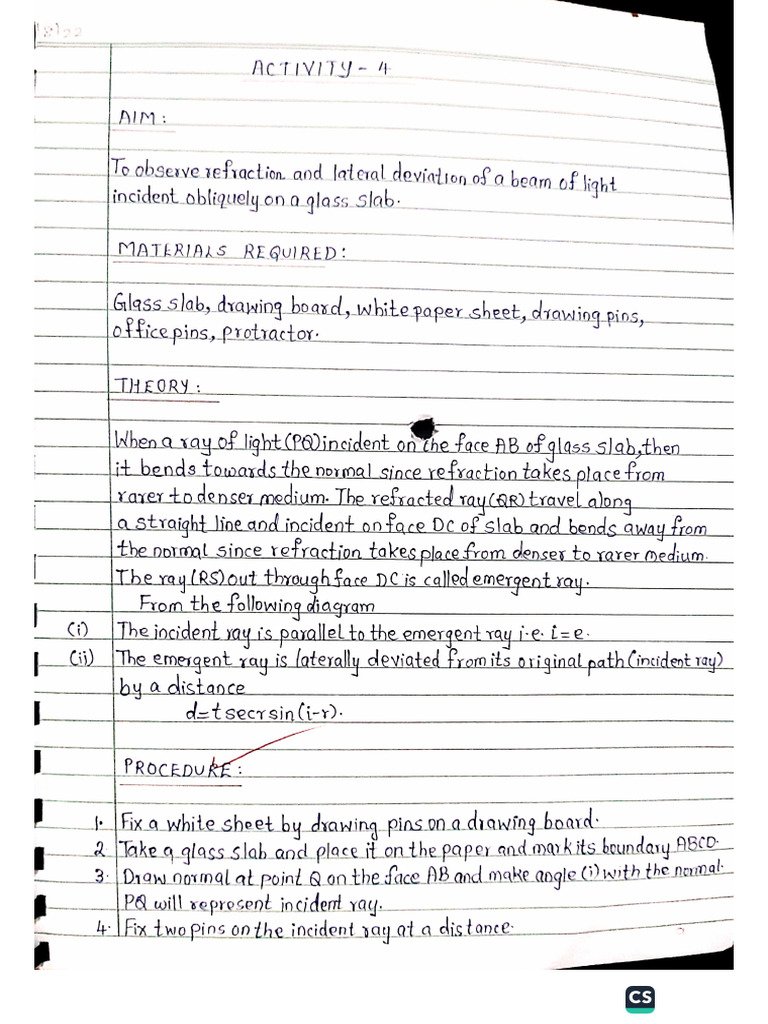 ACTIVITY - 4
AIM:
To observe refraction and lateral deviation of a beam of light
incident obliquely on a glass slab.
MATERIALS REQUIRED:
Glass slab, drawing board, white paper sheet, drawing pins,
office pins, protractor.
THEORY:
When a ray of light (PQ) incident on the face AB of glass slab, then
it bends towards the normal since refraction takes place from
rarer to denser medium. The refracted ray (QR) travel along
a straight line and incident on face DC of slab and bends away from
the normal since refraction takes place from denser to rarer medium.
The ray (RS) out through face DC is called emergent ray.
From the following diagram
(i) The incident ray is parallel to the emergent ray i.e. i=e.
(ii) The emergent ray is laterally deviated from its original path (incident ray)
by a distance
d=tsecrsin(i-r).
PROCEDURE:
1. Fix a white sheet by drawing pins on a drawing board.
2 Take a glass slab and place it on the paper and mark its boundary ABCD.
3. Draw normal at point Q on the face AB and make angle (i) with the normal.
PQ will represent incident ray.
4. Fix two pins on the incident ray at a distance.
CS